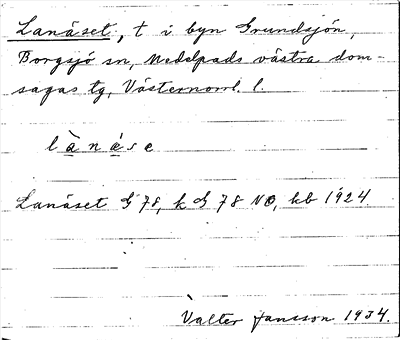 Lanåset, t i byn Grundsjön,
Borgsjö sn, Medelpads västra dom-
sagas tg, Västernorrl. l.
lànáse
Lanåset G 78, k G 78 NO, kb 1924.
Valter Jansson 1934.